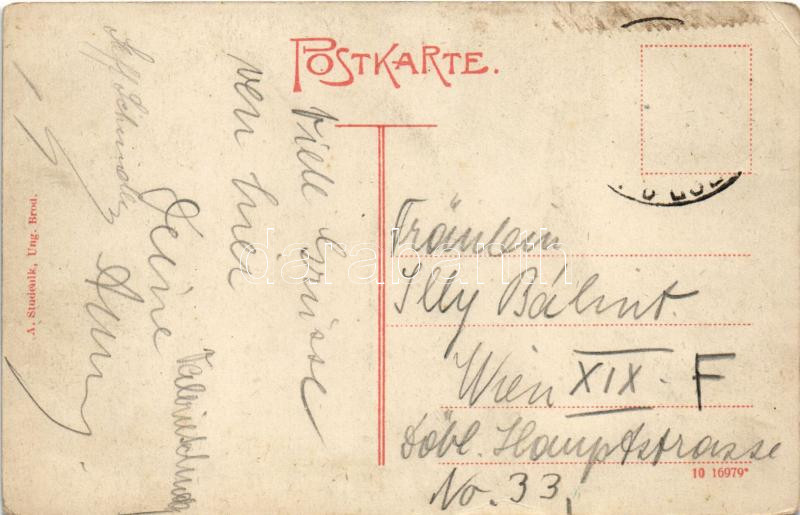 POSTKARTE.
Viele Grüsse
von hier
Deine
Anny
A. Studenik, Ung. Brod.
Fräulein
Illy Bálint.
Wien XIX. F
Döbl. Hauptstrasse
No. 33,
10 16979*
darabanth